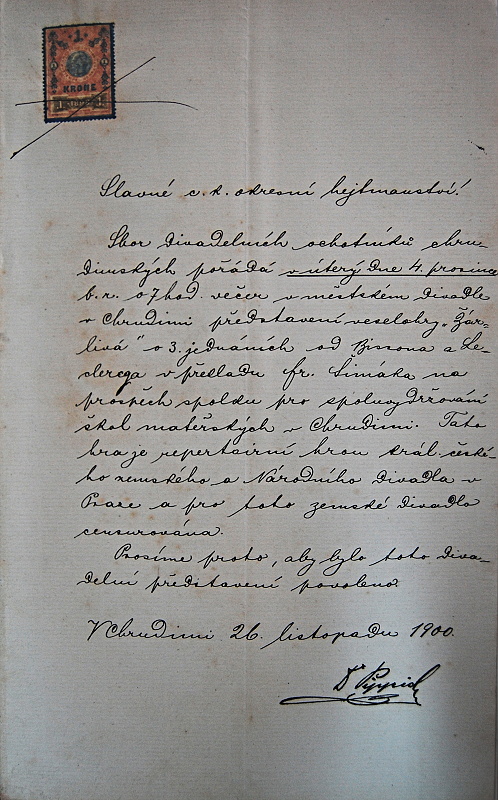 1
KRONE
Slavné c. k. okresní hejtmanství!
Sbor divadelních ochotníků chru-
dimských pořádá v úterý dne 4. prosince
b. r. o 7 hod. večer v městském divadle
v Chrudimi představení veselohry „Žár-
livá" o 3. jednáních od Bissona a Le-
clerqa v překladu Fr. Šimáka na
prospěch spolku pro spoluvydržování
škol mateřských v Chrudimi. Tato
hra je repertoirní hrou král. české-
ho zemského a Národního divadla v
Praze a pro toto zemské divadlo
censurována.
Prosíme proto, aby bylo toto diva-
delní představení povoleno.
V Chrudimi 26. listopadu 1900.
Dr Pippich